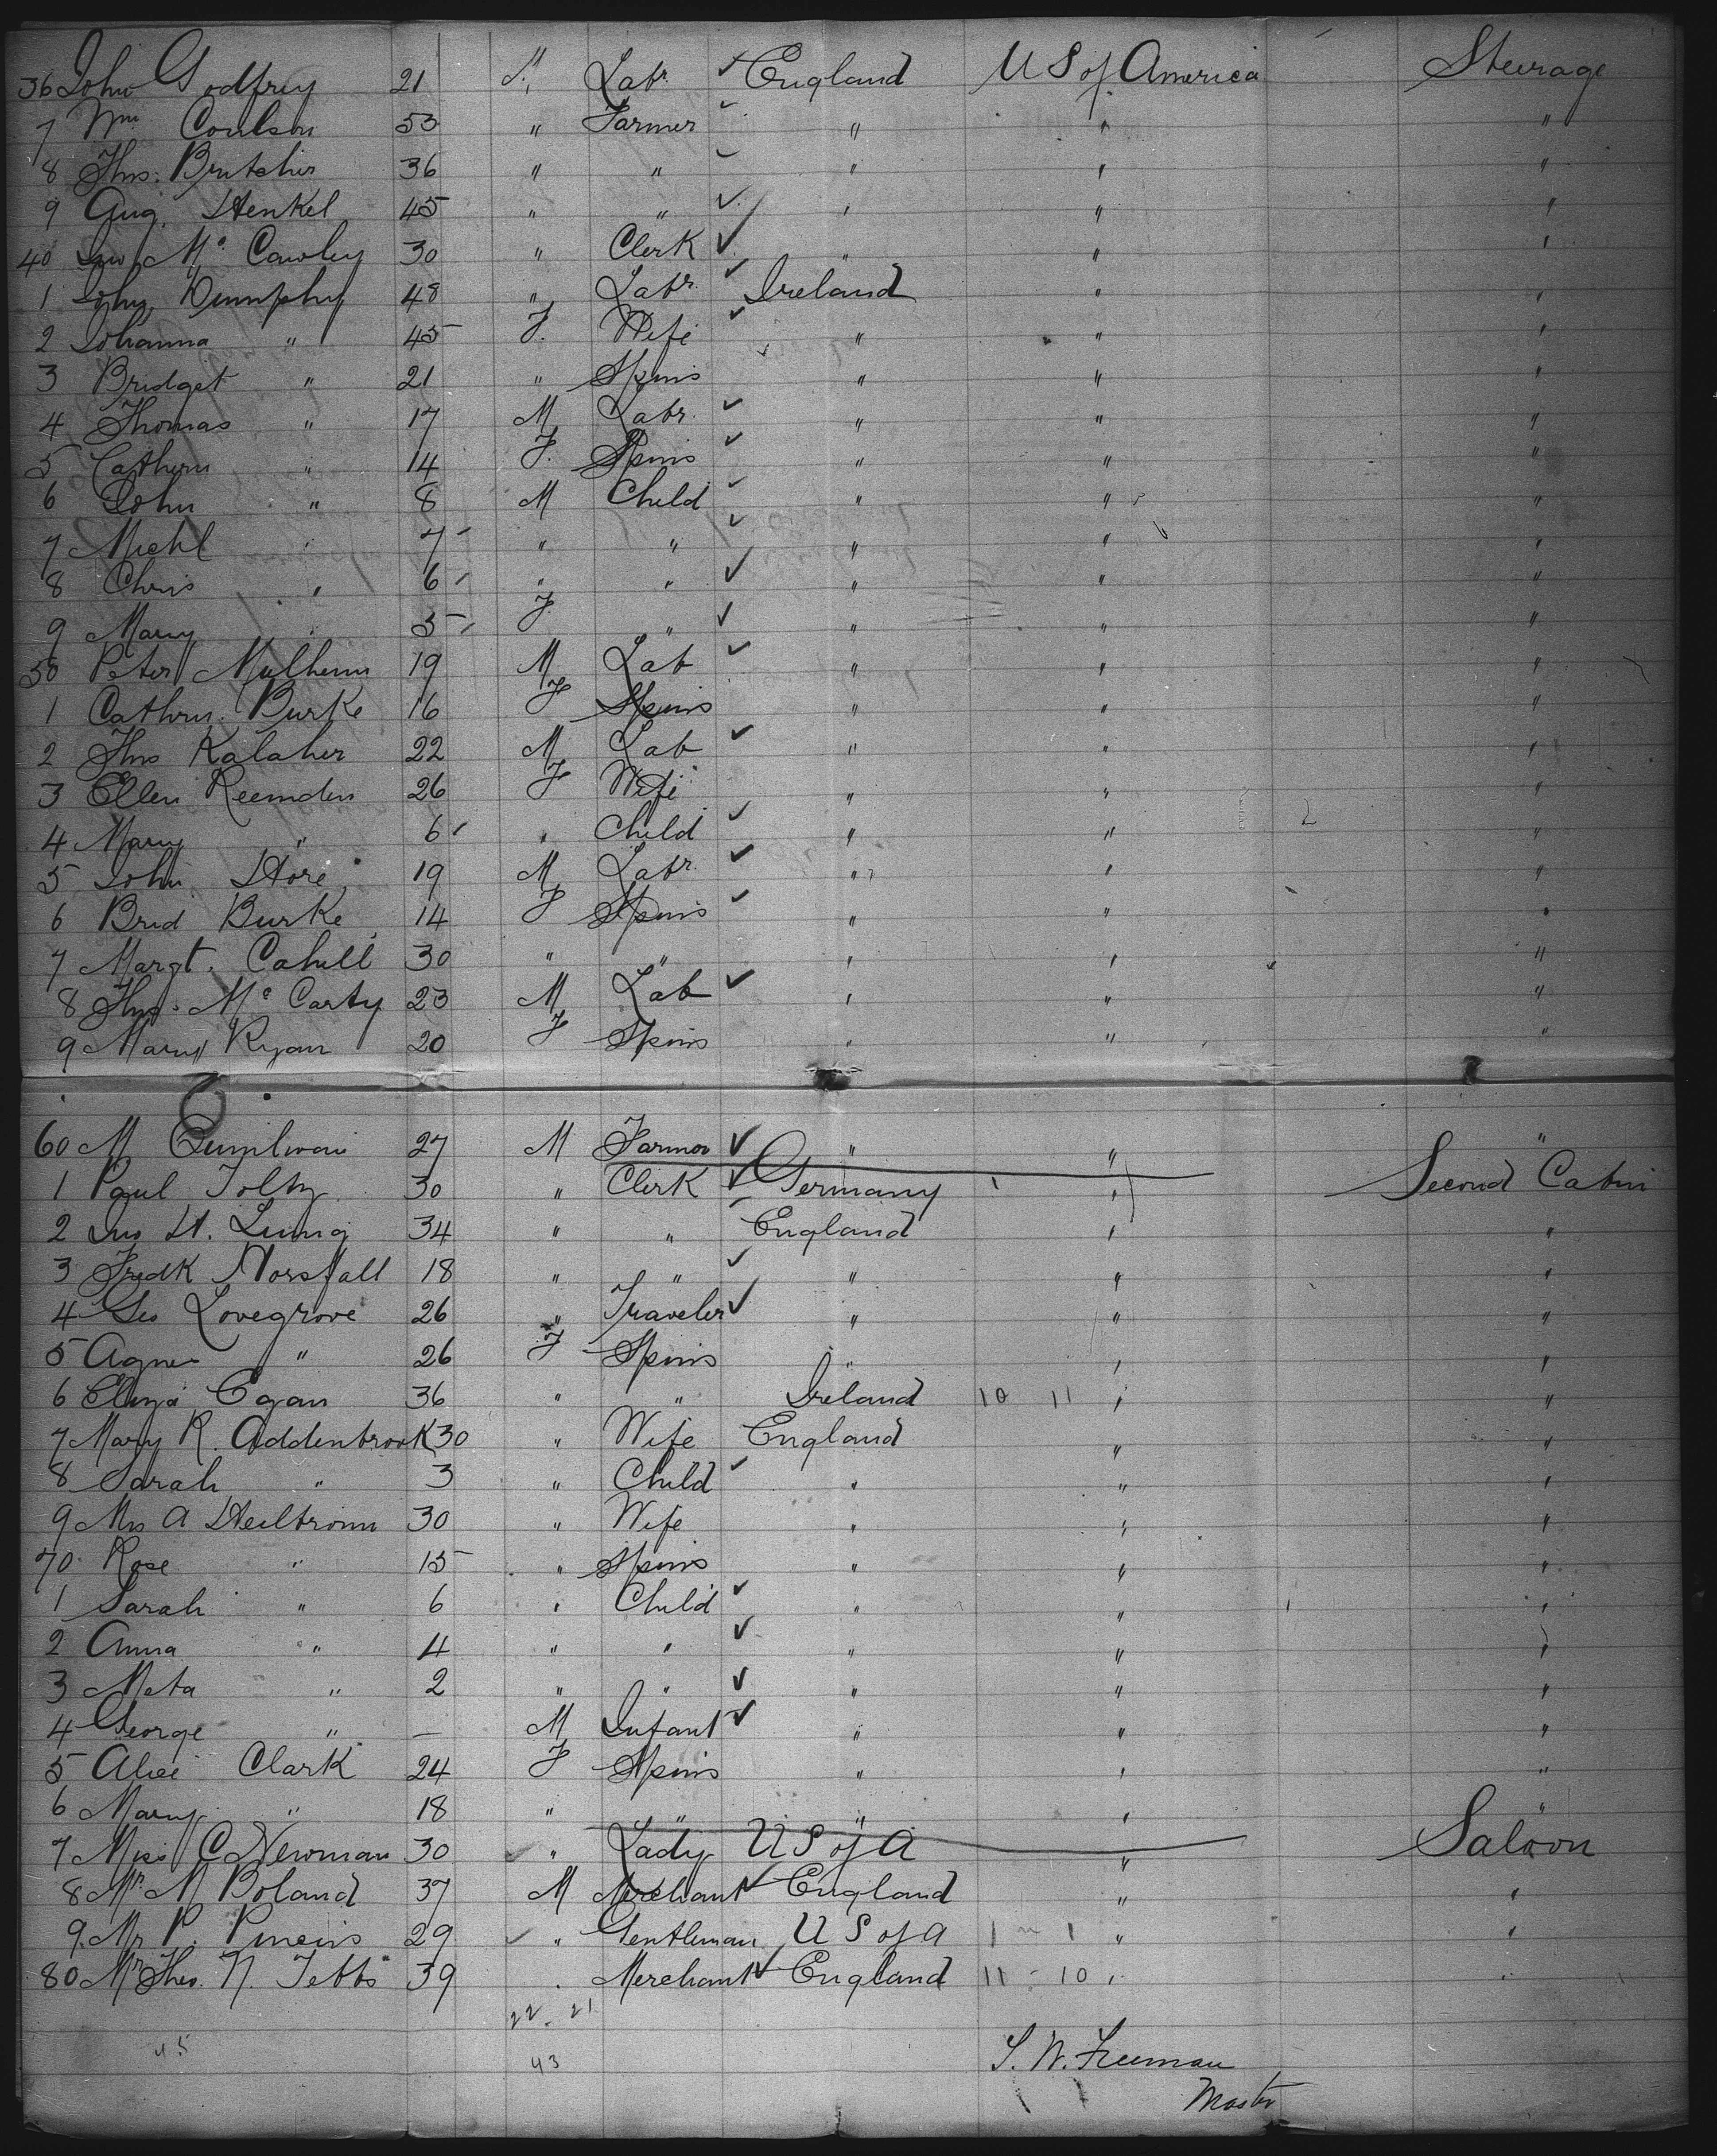 36 John Godfrey 21 M. Labr. ✓ England U S of America Steerage
7 Wm Coulson 53 " Farmer ✓ " " "
8 Thos. Brutcher 36 " " ✓ " " "
9 Aug. Henkel 45 " " ✓ " " "
40 Jno Mc Cawley 30 " Clerk ✓ " " "
1 John Dumphy 48 " Labr. ✓ Ireland " "
2 Johanna " 45 F. Wife ✓ " " "
3 Bridget " 21 " Spins " " "
4 Thomas " 17 M Labr. ✓ " " "
5 Cathern " 14 F. Spins ✓ " " "
6 John " 8 M Child ✓ " " "
7 Michl " 7 " " ✓ " " "
8 Chris " 6 " " ✓ " " "
9 Mary " 5 F " ✓ " " "
50 Peter Mulhern 19 M Lab ✓ " " "
1 Cathrn. Burke 16 F Spins " " "
2 Thos Kalaher 22 M Lab ✓ " " "
3 Ellen Reemden 26 F Wife " " "
4 Mary " 6 " Child ✓ " " "
5 John Hore 19 M Labr. ✓ " " "
6 Brid Burke 14 F Spins ✓ " " "
7 Margt. Cahill 30 " " " " "
8 Thos. Mc Carty 23 M Lab ✓ " " "
9 Mary Ryan 20 F Spins " " "
60 M 27 M Farmer ✓ " " "
1 Paul 30 " Clerk ✓ Germany " Second Cabin
2 Jno H. 34 " " England " "
3 Fredk Horsfall 18 " " ✓ " " "
4 Geo Lovegrove 26 " Traveler ✓ " " "
5 Agnes " 26 F Spins " " "
6 Eliza Egan 36 " " Ireland 10 11 " "
7 Mary R. Addenbrook 30 " Wife England " "
8 Sarah " 3 " Child ✓ " " "
9 Mrs A Heilbronn 30 " Wife " " "
70 Rose " 15 " Spins " " "
1 Sarah " 6 " Child ✓ " " "
2 Anna " 4 " " ✓ " " "
3 Meta " 2 " " ✓ " " "
4 George " — M Infant ✓ " " "
5 Alice Clark 24 F Spins " " "
6 Mary " 18 " " " " "
7 Miss C Newman 30 " Lady U S of A " Saloon
8 Mr M Boland 37 M Merchant ✓ England " "
9 Mr P. 29 " Gentleman U S of A 1 " 1 " "
80 Mr Theo. N. Tebbs 39 " Merchant ✓ England 11 - 10 " "
22 . 21
45 43 S. W. Freeman
Master